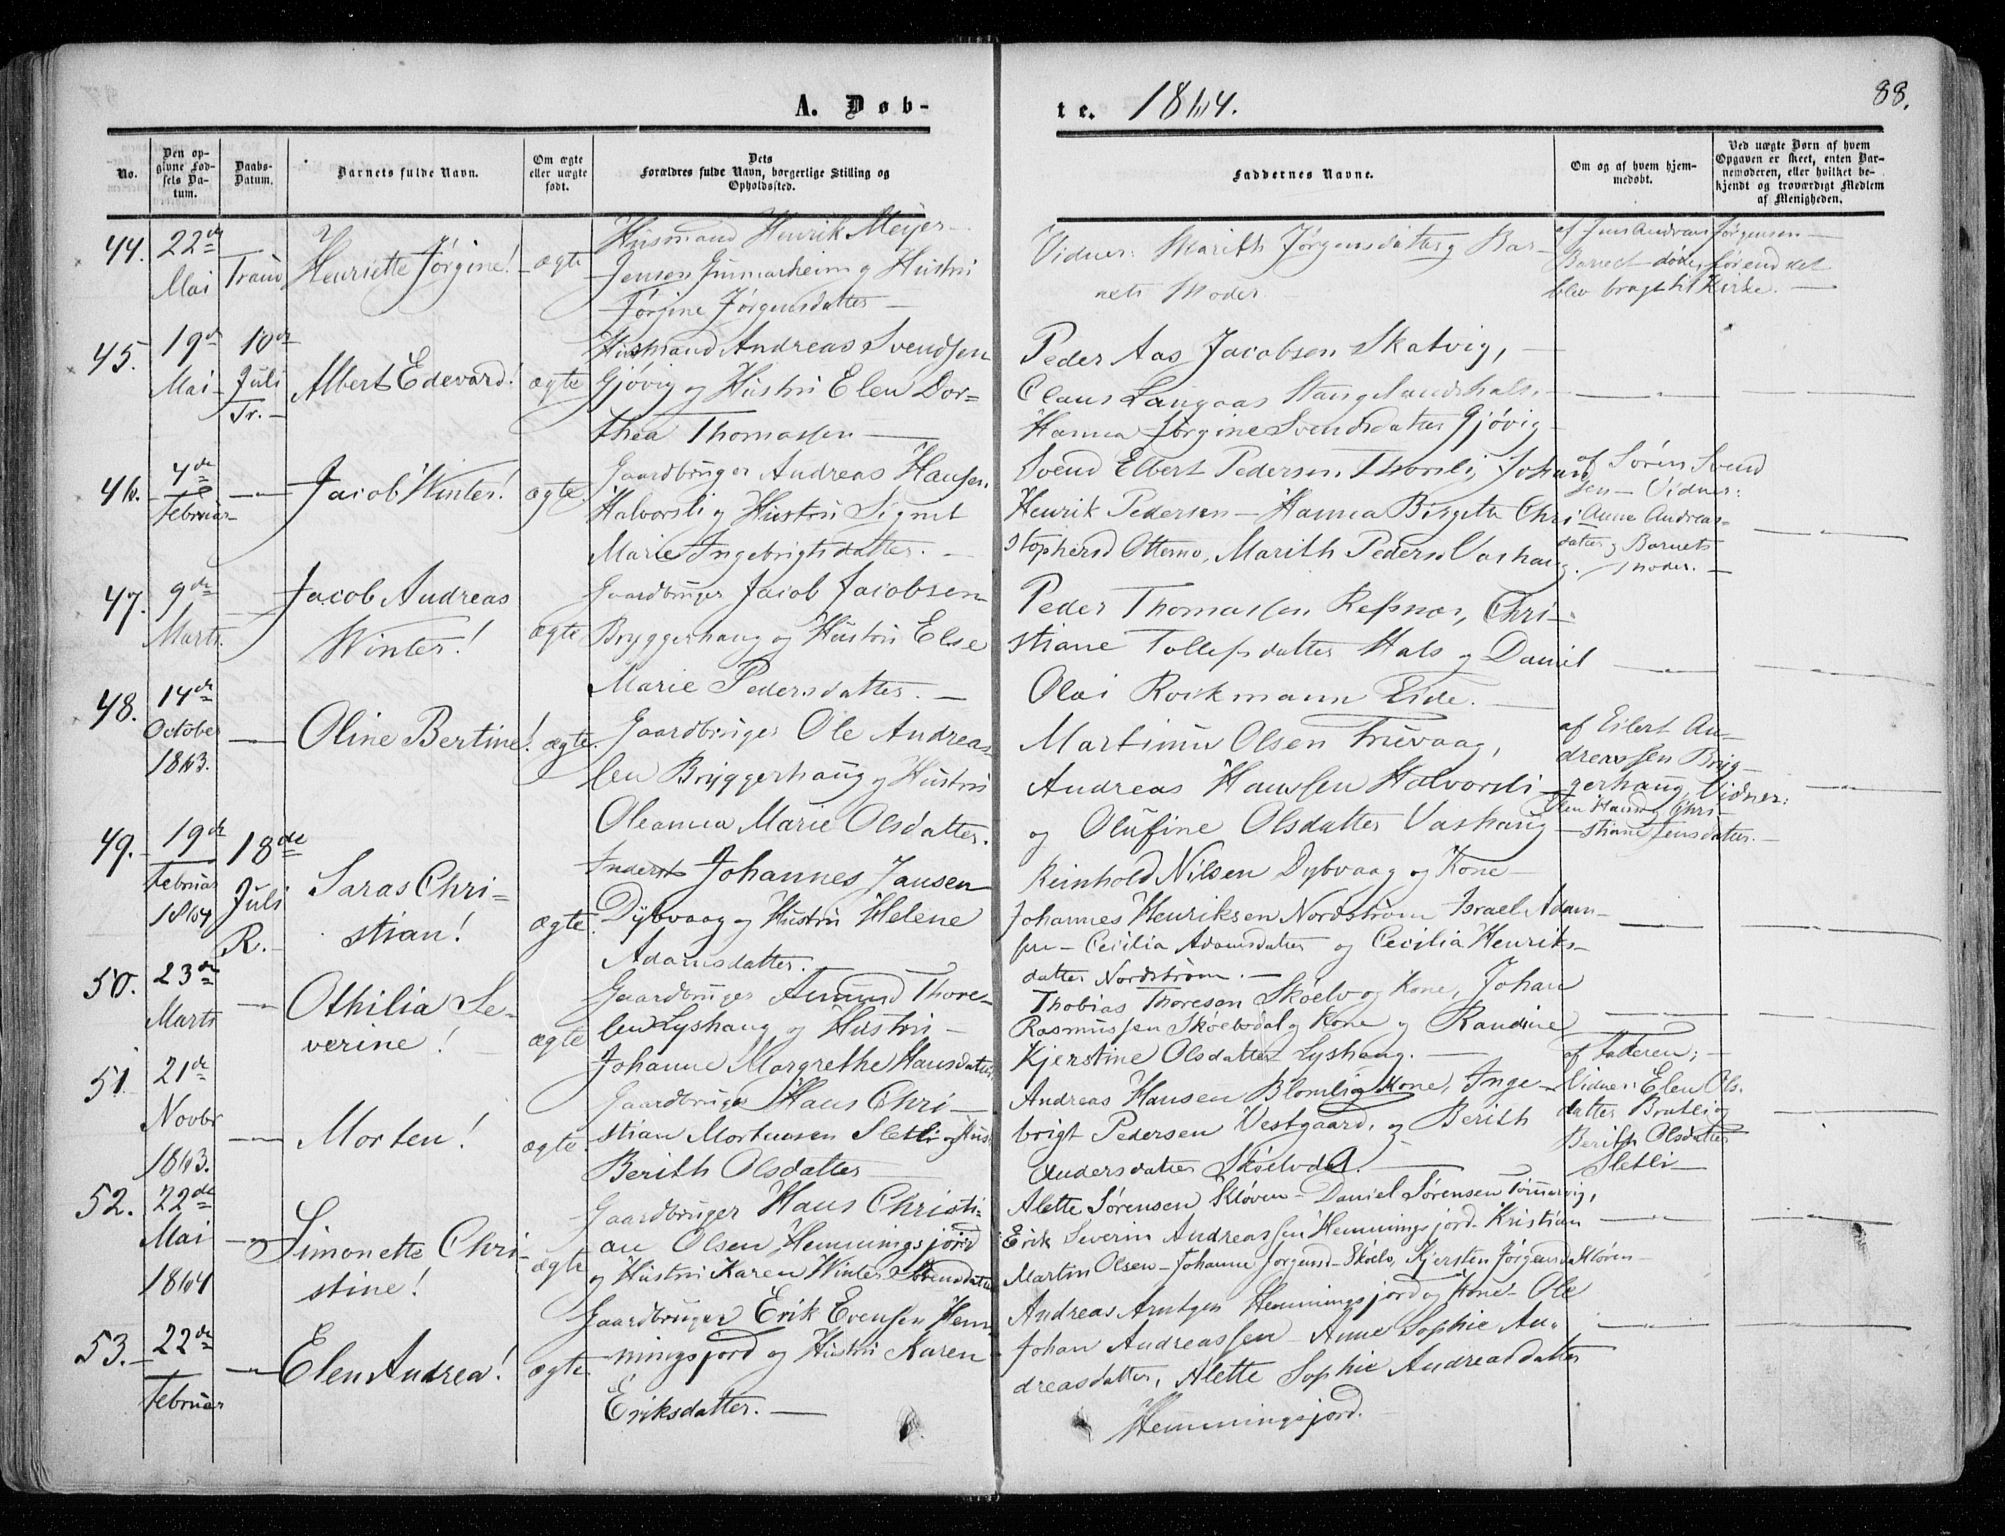 A. Døb-
te. 1864.
88.
No.
Den op-
givne Fød-
sels Da-
tum.
Daabs-
Datum.
Barnets fulde Navn.
Om ægte
eller uægte
født.
Dets
Forældres fulde Navn, borgerlige Stilling og
Opholdssted.
Faddernes Navne.
Om og af hvem hjem-
medøbt.
Ved uægte Børn af hvem
Opgaven er skeet, enten Bar-
nemoderen, eller hvilket be-
kjendt og troværdigt Medlem
af Menigheden.
44.
22de
Mai
Tranø
Henriette Jørgine!
ægte
Husmand Henrik Meyer
Jensen Gunnarheim og Hustru
Jørgine Jørgensdatter
Vidner: Marith Jørgensdatter og Bar-
nets Moder
af Jens Andreas Jørgensen
Barnet døde, førend det
blev bragt til Kirke.
45.
19de
Mai
10de
Juli
Tr.
Albert Edevard!
ægte
Husmand Andreas Svendsen
Gjøvig og Hustru Elen Dor=
thea Thomassen
Peder Aas Jacobsen Skatvig,
Claus Langaas Stangelandshals.
Hanna Jørgine Svendsdatter Gjøvig
46.
4de
Februar
Jacob Winter!
ægte.
Gaardbruger Andreas Hansen
Halvorsli og Hustru Signet
Marie Ingebrigtsdatter.
Svend Elbert Pedersen Thorsli, Johan
Henrik Pedersen - Hanna Birgitte Chri
stophersd Otterno, Marith Pedersd Vashaug.
af Søren Svend
sen - Vidner:
Anne Andreas=
datter og Barnets
Moder.
47.
9de
Marts
Jacob Andreas
Winter!
ægte
Gaardbruger Jacob Jacobsen
Bryggerhaug og Hustru Else
Marie Pedersdatter.
Peder Thomassen Refsnes, Chri-
stiane Tollefsdatter Hals og Daniel
Olai Rockmann Eide.
48.
14de
October
1863.
Oline Bertine!
ægte.
Gaardbruger Ole Andreas
sen Bryggerhaug og Hustru
Oleanna Marie Olsdatter.
Martinus Olsen Truvaag,
Andreas Hansen Halvorsli
og Olufine Olsdatter Vashaug
af Eilert An-
dreassen Brig-
gerhaug, Vidner:
Elen Hansd og Chri-
stiane Jensdatter.
49.
19de
Februar
1864
18de
Juli
R.
Saras Chri-
stian!
ægte.
Inderst Johannes Jansen
Dybvaag og Hustru Helene
Adamsdatter.
Reinhold Nilsen Dybvaag og Kone
Johannes Henriksen Nordstrøm Israel Adam-
sen - Cecilia Adamsdatter og Cecilia Henriks-
datter Nordstrøm.
50.
23de
Marts
Othilia Se-
verine!
ægte
Gaardbruger Amund Thore-
sen Lyshaug og Hustru
Johanne Margrethe Hansdatter.
Thobias Thoresen Skøelv og Kone, Johan
Rasmussen Skøelvdal og Kone og Randine
Kjerstine Olsdatter Lyshaug.
51.
21de
Novbr
1863.
Morten!
ægte.
Gaardbruger Hans Chri-
stian Mortensen Sletli og Hust
Berith Olsdatter
Andreas Hansen Blomli og Kone, Inge-
brigt Pedersen Vestgaard, og Berith
Andersdatter Skøelvdal.
af Faderen;
Vidner: Elen Ols.
datter Bratli og
Berith Olsdatter
Sletli
52.
22de
Mai
1864
Simonette Chri-
stine!
ægte
Gaardbruger Hans Christi=
an Olsen Hemmingsjord
og Hustru Karen Winter Sørensdatter
Alette Sørensen Kløven - Daniel Sørensen Tømmervig,
Erik Severin Andreassen Hemmingsjord Kristian
Martin Olsen - Johanne Jørgensd Skøelv, Kjersten Jørgensd Kløven
53.
22de
Februar
Elen Andrea!
ægte.
Gaardbruger Erik Evensen Hem-
mingsjord og Hustru Karen
Eriksdatter.
Andreas Arntzen Hemmingsjord og Kone - Ole
Johan Andreassen - Anne Sophie An-
dreasdatter, Alette Sophie Andreasdatter
Hemmingsjord.